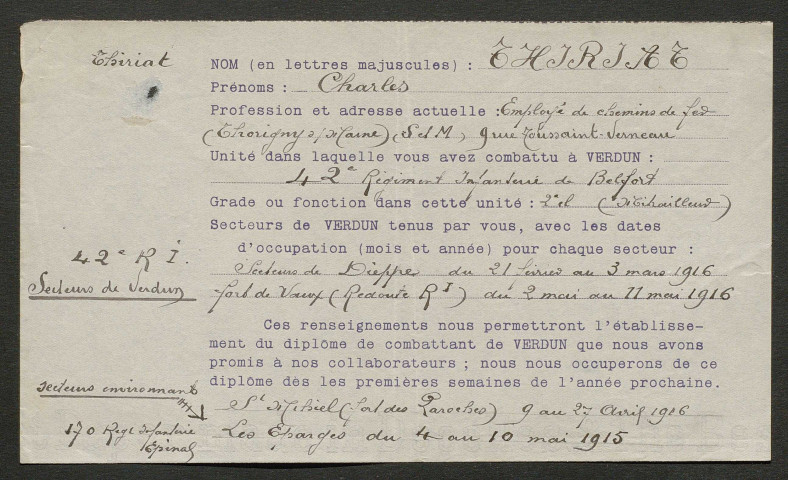 Thiriat
NOM (en lettres majuscules) : THIRIAT
Prénoms : Charles
Profession et adresse actuelle : Employé de chemins de fer
(Thorigny s/Marne) (S et M) 9 rue Toussaint-Verneau
Unité dans laquelle vous avez combattu à VERDUN :
42e Régiment Infanterie de Belfort
Grade ou fonction dans cette unité : 2e cl (Mitrailleur)
Secteurs de VERDUN tenus par vous, avec les dates
d'occupation (mois et année) pour chaque secteur :
42e R I.
Secteurs de Verdun
Secteurs de Dieppe du 21 février au 3 mars 1916
fort de Vaux (Redoute R1) du 2 mai au 11 mai 1916
Ces renseignements nous permettront l'établisse-
ment du diplôme de combattant de VERDUN que nous avons
promis à nos collaborateurs ; nous nous occuperons de ce
diplôme dès les premières semaines de l'année prochaine.
secteurs environnants
St Mihiel (fort des Paroches) 9 au 27 Avril 1916
170 Regt Infanterie
Epinal
Les Eparges du 4 au 10 mai 1915